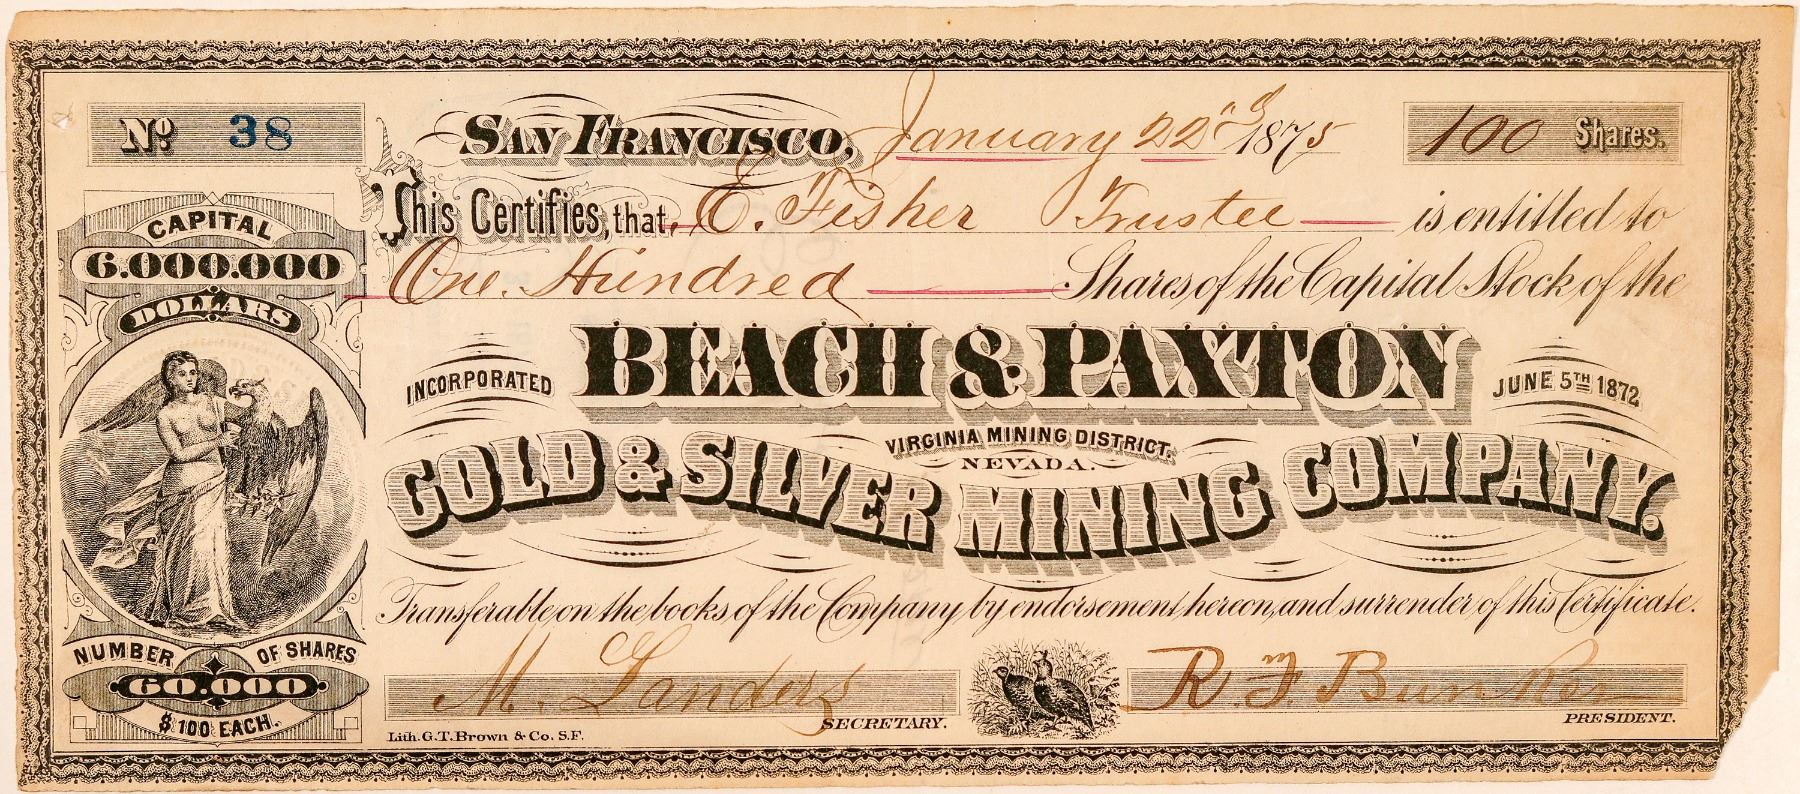 Nº 38
San Francisco, January 22nd 1875
100 Shares.
This Certifies, that E. Fisher Trustee is entitled to
One Hundred Shares of the Capital Stock of the
CAPITAL
6.000.000
DOLLARS
INCORPORATED BEACH & PAXTON JUNE 5TH 1872
VIRGINIA MINING DISTRICT.
NEVADA.
GOLD & SILVER MINING COMPANY.
Transferable on the books of the Company by endorsement hereon, and surrender of this Certificate.
NUMBER OF SHARES
60.000
$100 EACH.
M. Landers
SECRETARY.
R. F. Bunker
PRESIDENT.
Lith. G.T. Brown & Co. S.F.